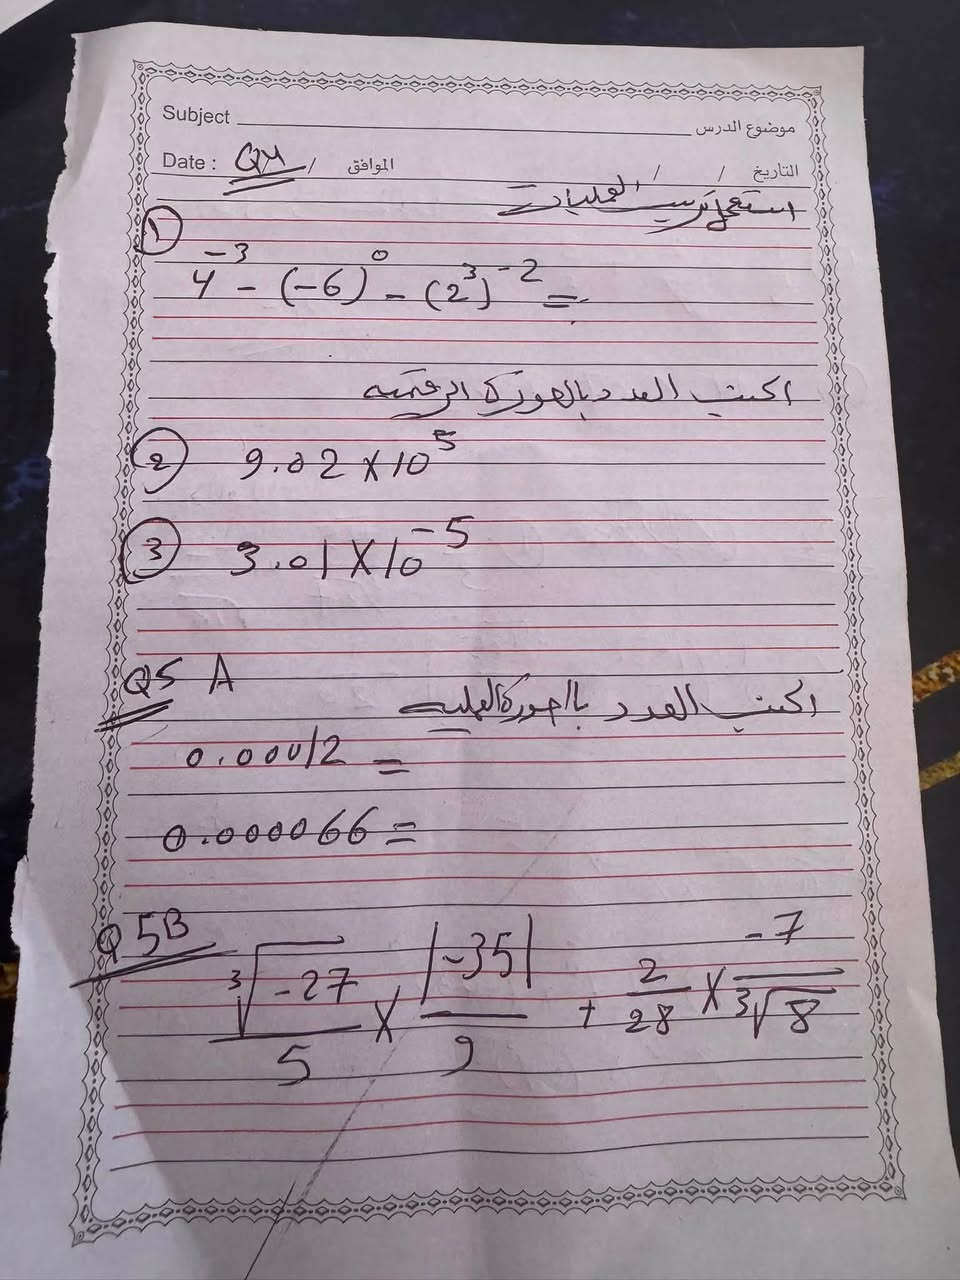 Subject موضوع الدرس
Date : Q4 / الموافق / / التاريخ
استعمل ترتيب العمليات
1 4⁻³ - (-6)⁰ - (2³)⁻² =
اكتب العدد بالصورة الرقمية
2 9.02 × 10⁵
3 3.01 × 10⁻⁵
Q5 A
اكتب العدد بالصورة العلمية
0.00012 =
0.000066 =
Q5B
∛-27 / 5 × |-35| / 9 + 2 / 28 × -7 / ∛8